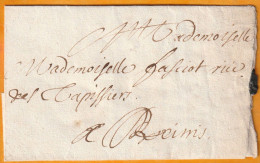 Mademoiselle
Mademoiselle fascot rüe
des Tapissiers
a Reims